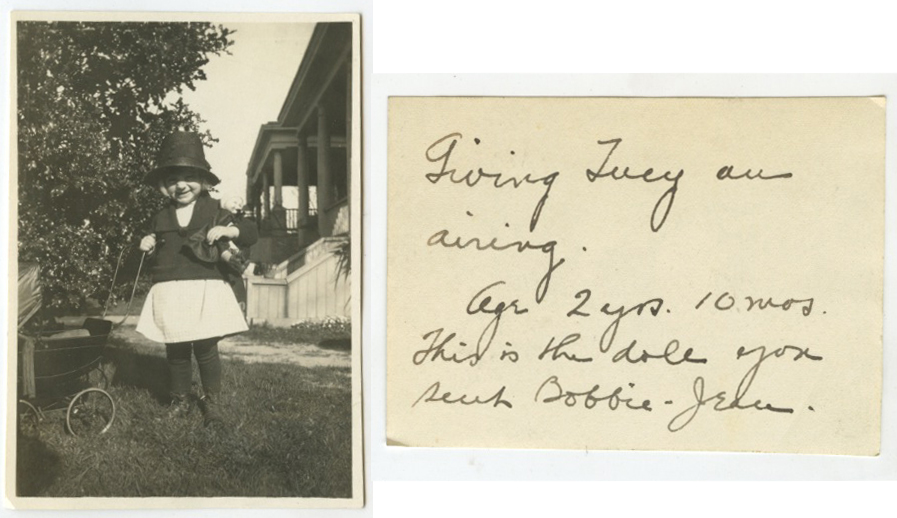 Giving Lucy an
airing.
Age 2 yrs. 10 mos.
This is the doll you
sent Bobbie-Jean.